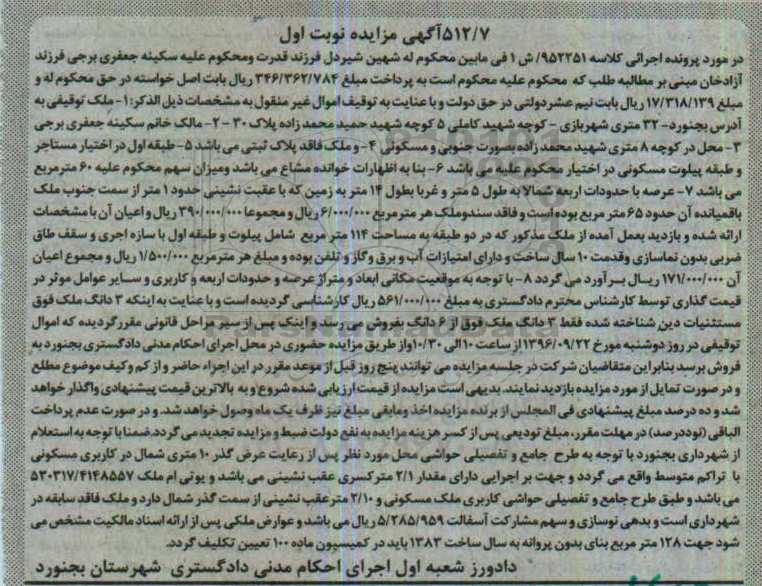 ۵۱۲/۷آگهی مزایده نوبت اول
در مورد پرونده اجرائی کلاسه ۹۵۲۲۵۱/ ش ۱ فی مابین محکوم له شهین شیردل فرزند قدرت ومحکوم علیه سکینه جعفری برجی فرزند
آزادخان مبنی بر مطالبه طلب که محکوم علیه محکوم است به پرداخت مبلغ ۳۴۶/۳۶۲/۷۸۴ ریال بابت اصل خواسته در حق محکوم له و
مبلغ ۱۷/۳۱۸/۱۳۹ ریال بابت نیم عشردولتی در حق دولت و با عنایت به توقیف اموال غیر منقول به مشخصات ذیل الذکر: ۱- ملک توقیفی به
آدرس بجنورد- ۳۲ متری شهربازی - کوچه شهید کاملی ۵ کوچه شهید حمید محمد زاده پلاک ۳۰ - ۲- مالک خانم سکینه جعفری برجی
۳- محل در کوچه ۸ متری شهید محمد زاده بصورت جنوبی و مسکونی ۴- و ملک فاقد پلاک ثبتی می باشد ۵- طبقه اول در اختیار مستاجر
و طبقه پیلوت مسکونی در اختیار محکوم علیه می باشد ۶- بنا به اظهارات خوانده مشاع می باشد ومیزان سهم محکوم علیه ۶۰ مترمربع
می باشد ۷- عرصه با حدودات اربعه شمالا به طول ۵ متر و غربا بطول ۱۴ متر به زمین که با عقبت نشینی حدود ۱ متر از سمت جنوب ملک
باقیمانده آن حدود ۶۵ متر مربع بوده است و فاقد سندوملک هر مترمربع ۶/۰۰۰/۰۰۰ ریال و مجموعا ۳۹۰/۰۰۰/۰۰۰ ریال و اعیان آن با مشخصات
ارائه شده و بازدید بعمل آمده از ملک مذکور که در دو طبقه به مساحت ۱۱۴ متر مربع شامل پیلوت و طبقه اول با سازه اجری و سقف طاق
ضربی بدون نماسازی وقدمت ۱۰ سال ساخت و دارای امتیازات آب و برق وگاز و تلفن بوده و مبلغ هر مترمربع ۱/۵۰۰/۰۰۰ ریال و مجموع اعیان
آن ۱۷۱/۰۰۰/۰۰۰ ریال بر آورد می گردد ۸- با توجه به موقعیت مکانی ابعاد و متراژ عرصه و حدودات اربعه و کاربری و سایر عوامل موثر در
قیمت گذاری توسط کارشناس محترم دادگستری به مبلغ ۵۶۱/۰۰۰/۰۰۰ ریال کارشناسی گردیده است و با عنایت به اینکه ۳ دانگ ملک فوق
مستثنیات دین شناخته شده فقط ۳ دانگ ملک فوق از ۶ دانگ بفروش می رسد و اینک پس از سیر مراحل قانونی مقرر گردیده که اموال
توقیفی در روز دوشنبه مورخ ۱۳۹۶/۰۹/۲۲ از ساعت ۱۰ الی ۱۰/۳۰ واز طریق مزایده حضوری در محل اجرای احکام مدنی دادگستری بجنورد به
فروش برسد بنابراین متقاضیان شرکت در جلسه مزایده می توانند پنج روز قبل از موعد مقرر در این اجراء حاضر و از کم وکیف موضوع مطلع
و در صورت تمایل از مورد مزایده بازدید نمایند. بدیهی است مزایده از قیمت ارزیابی شده شروع و به بالاترین قیمت پیشنهادی واگذار خواهد
شد و ده درصد مبلغ پیشنهادی فی المجلس از برنده مزایده اخذ ومابقی مبلغ نیز ظرف یک ماه وصول خواهد شد. و در صورت عدم پرداخت
الباقی (نوددرصد) در مهلت مقرر، مبلغ تودیعی پس از کسر هزینه مزایده به نفع دولت ضبط و مزایده تجدید می گردد.ضمنا با توجه به استعلام
از شهرداری بجنورد با توجه به طرح جامع و تفصیلی حواشی محل مورد نظر پس از رعایت عرض گذر ۱۰ متری شمال در کاربری مسکونی
با تراکم متوسط واقع می گردد و جهت بر اجرایی دارای مقدار ۲/۱ مترکسری عقب نشینی می باشد و یوتی ام ملک ۵۳۰۳۱۷/۴۱۴۸۵۵۷
می باشد و طبق طرح جامع و تفصیلی حواشی کاربری ملک مسکونی و ۲/۱۰ مترعقب نشینی از سمت گذر شمال دارد و ملک فاقد سابقه در
شهرداری است و بدهی نوسازی و سهم مشارکت آسفالت ۵/۲۸۵/۹۵۹ ریال می باشد و عوارض ملکی پس از ارائه اسناد مالکیت مشخص می
شود جهت ۱۲۸ متر مربع بنای بدون پروانه به سال ساخت ۱۳۸۳ باید در کمیسیون ماده ۱۰۰ تعیین تکلیف گردد.
دادورز شعبه اول اجرای احکام مدنی دادگستری شهرستان بجنورد